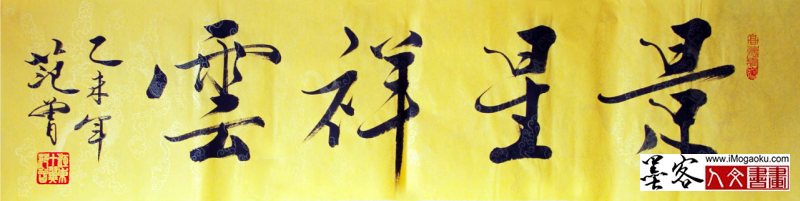 景星祥雲
乙未年
范曾
www.iMogaoku.com
墨客
人文書畫